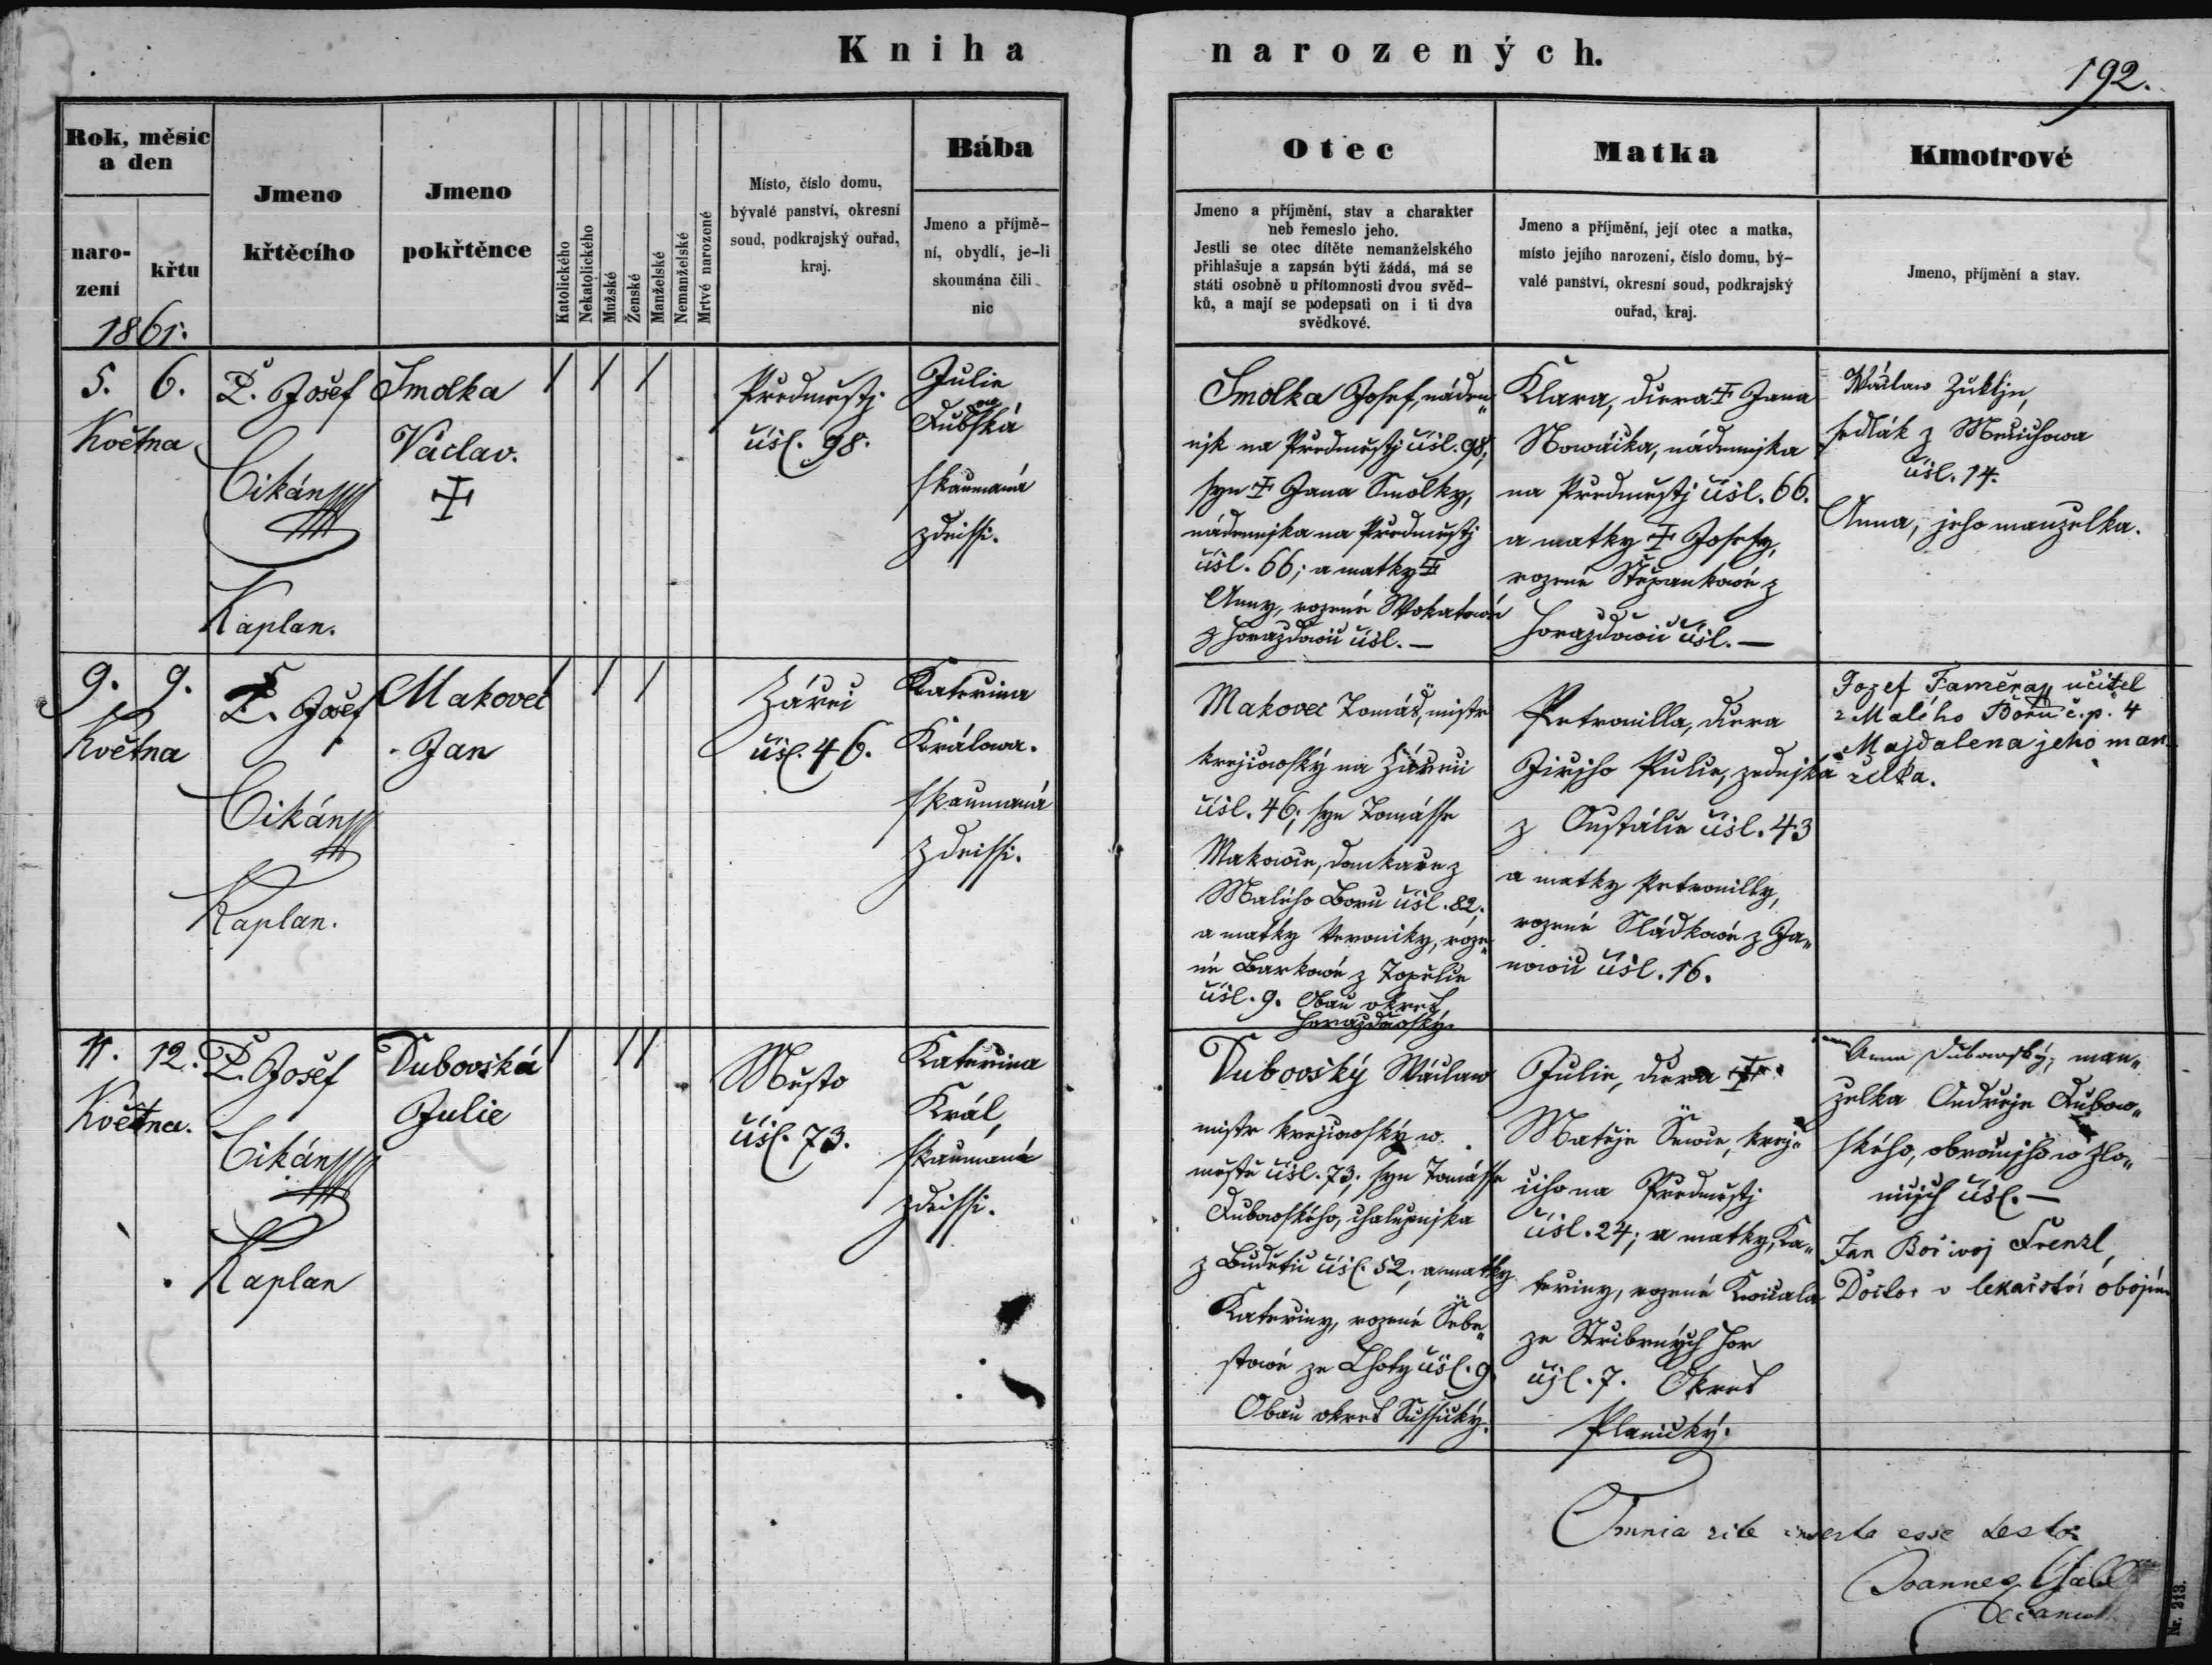 Kniha narozených.
192.
Rok, měsíc
a den
naro-
zení
křtu
1861.
Jmeno
křtěcího
Jmeno
pokřtěnce
Katolického
Nekatolického
Mužské
Ženské
Manželské
Nemanželské
Mrtvé narozené
Místo, číslo domu,
bývalé panství, okresní
soud, podkrajský ouřad,
kraj.
Bába
Jmeno a příjmě-
ní, obydlí, je-li
skoumána čili
nic
Otec
Jmeno a příjmění, stav a charakter
neb řemeslo jeho.
Jestli se otec dítěte nemanželského
přihlašuje a zapsán býti žádá, má se
státi osobně u přítomnosti dvou svěd-
ků, a mají se podepsati on i ti dva
svědkové.
Matka
Jmeno a příjmění, její otec a matka,
místo jejího narození, číslo domu, bý-
valé panství, okresní soud, podkrajský
ouřad, kraj.
Kmotrové
Jmeno, příjmění a stav.
5. 6.
Května
P. Josef
Cikán
Kaplan.
Smolka
Václav.
Předměstj
čísl. 98.
Julie
skaumaná
zdejssi.
Smolka Josef, náden„
njk na Předměstj čísl. 98,
syn Jana Smolky,
nádennjka na Předměstj
čísl. 66; a matky
Anny, rozené Wokatowé
z Horažďowic čísl. —
Klara, dcera Jana
Nowáčka, nádennjka
na Předměstj čísl. 66.
a matky Josefy,
rozené Štěpankowé z
Horažďowic čísl. —
Wáclaw Zukljn,
sedlák z
čísl. 14.
Anna, jeho manželka.
9. 9.
Května
P. Josef
Cikán
Kaplan.
Makovec
Jan
Zářeči
čísl. 46.
Kateřina
Králowa.
skaumaná
zdejssi.
Makovec Tomáš, mistr
krejčowský na Zářečí
čísl. 46; syn Tomásse
Makowce, domkáře z
Malého Boru čísl. 82;
a matky Veroniky, roze„
né Barkowé z Topělce
čísl. 9. Obau okres
Horažďowský.
Petronilla, dcera
Jiřjho Pulce, zednjka
z čísl. 43
a matky Petronilly,
rozené Sládkowé z Ja„
nowic čísl. 16.
Jozef Faměra, učitel
z Malého Boru č.p. 4
Majdalena jeho man
želka.
11. 12.
Května.
P. Josef
Cikán
Kaplan
Dubovská
Julie
Město
čísl. 73.
Kateřina
Král,
skaumaná
zdejssi.
Dubovský Wáclaw
mistr krejčowský w
městě čísl. 73; syn Tomásse
Dubowského, chalupnjka
z Budětic čísl. 52; a matky
Kateřiny, rozené Šebe„
stowé ze Lhoty čísl. 9
Obau okres Sussický.
Julie, dcera
Matěje Šewce, krej„
čiho na Předměstj
čísl. 24; a matky, Ka„
teřiny, rozené Kwičala
ze Střibrných Hor
čjsl. 7. Okres
Planický.
Anna Dubowský, man„
želka Ondřeje Dubow„
ského, obročnjho w Zlo„
nicjch čísl. —
Jan Bořivoj Frenzl,
Doctor v lekařství obojím
Omnia rite inserta esse testor
Joannes
Decanus
Nr. 213.